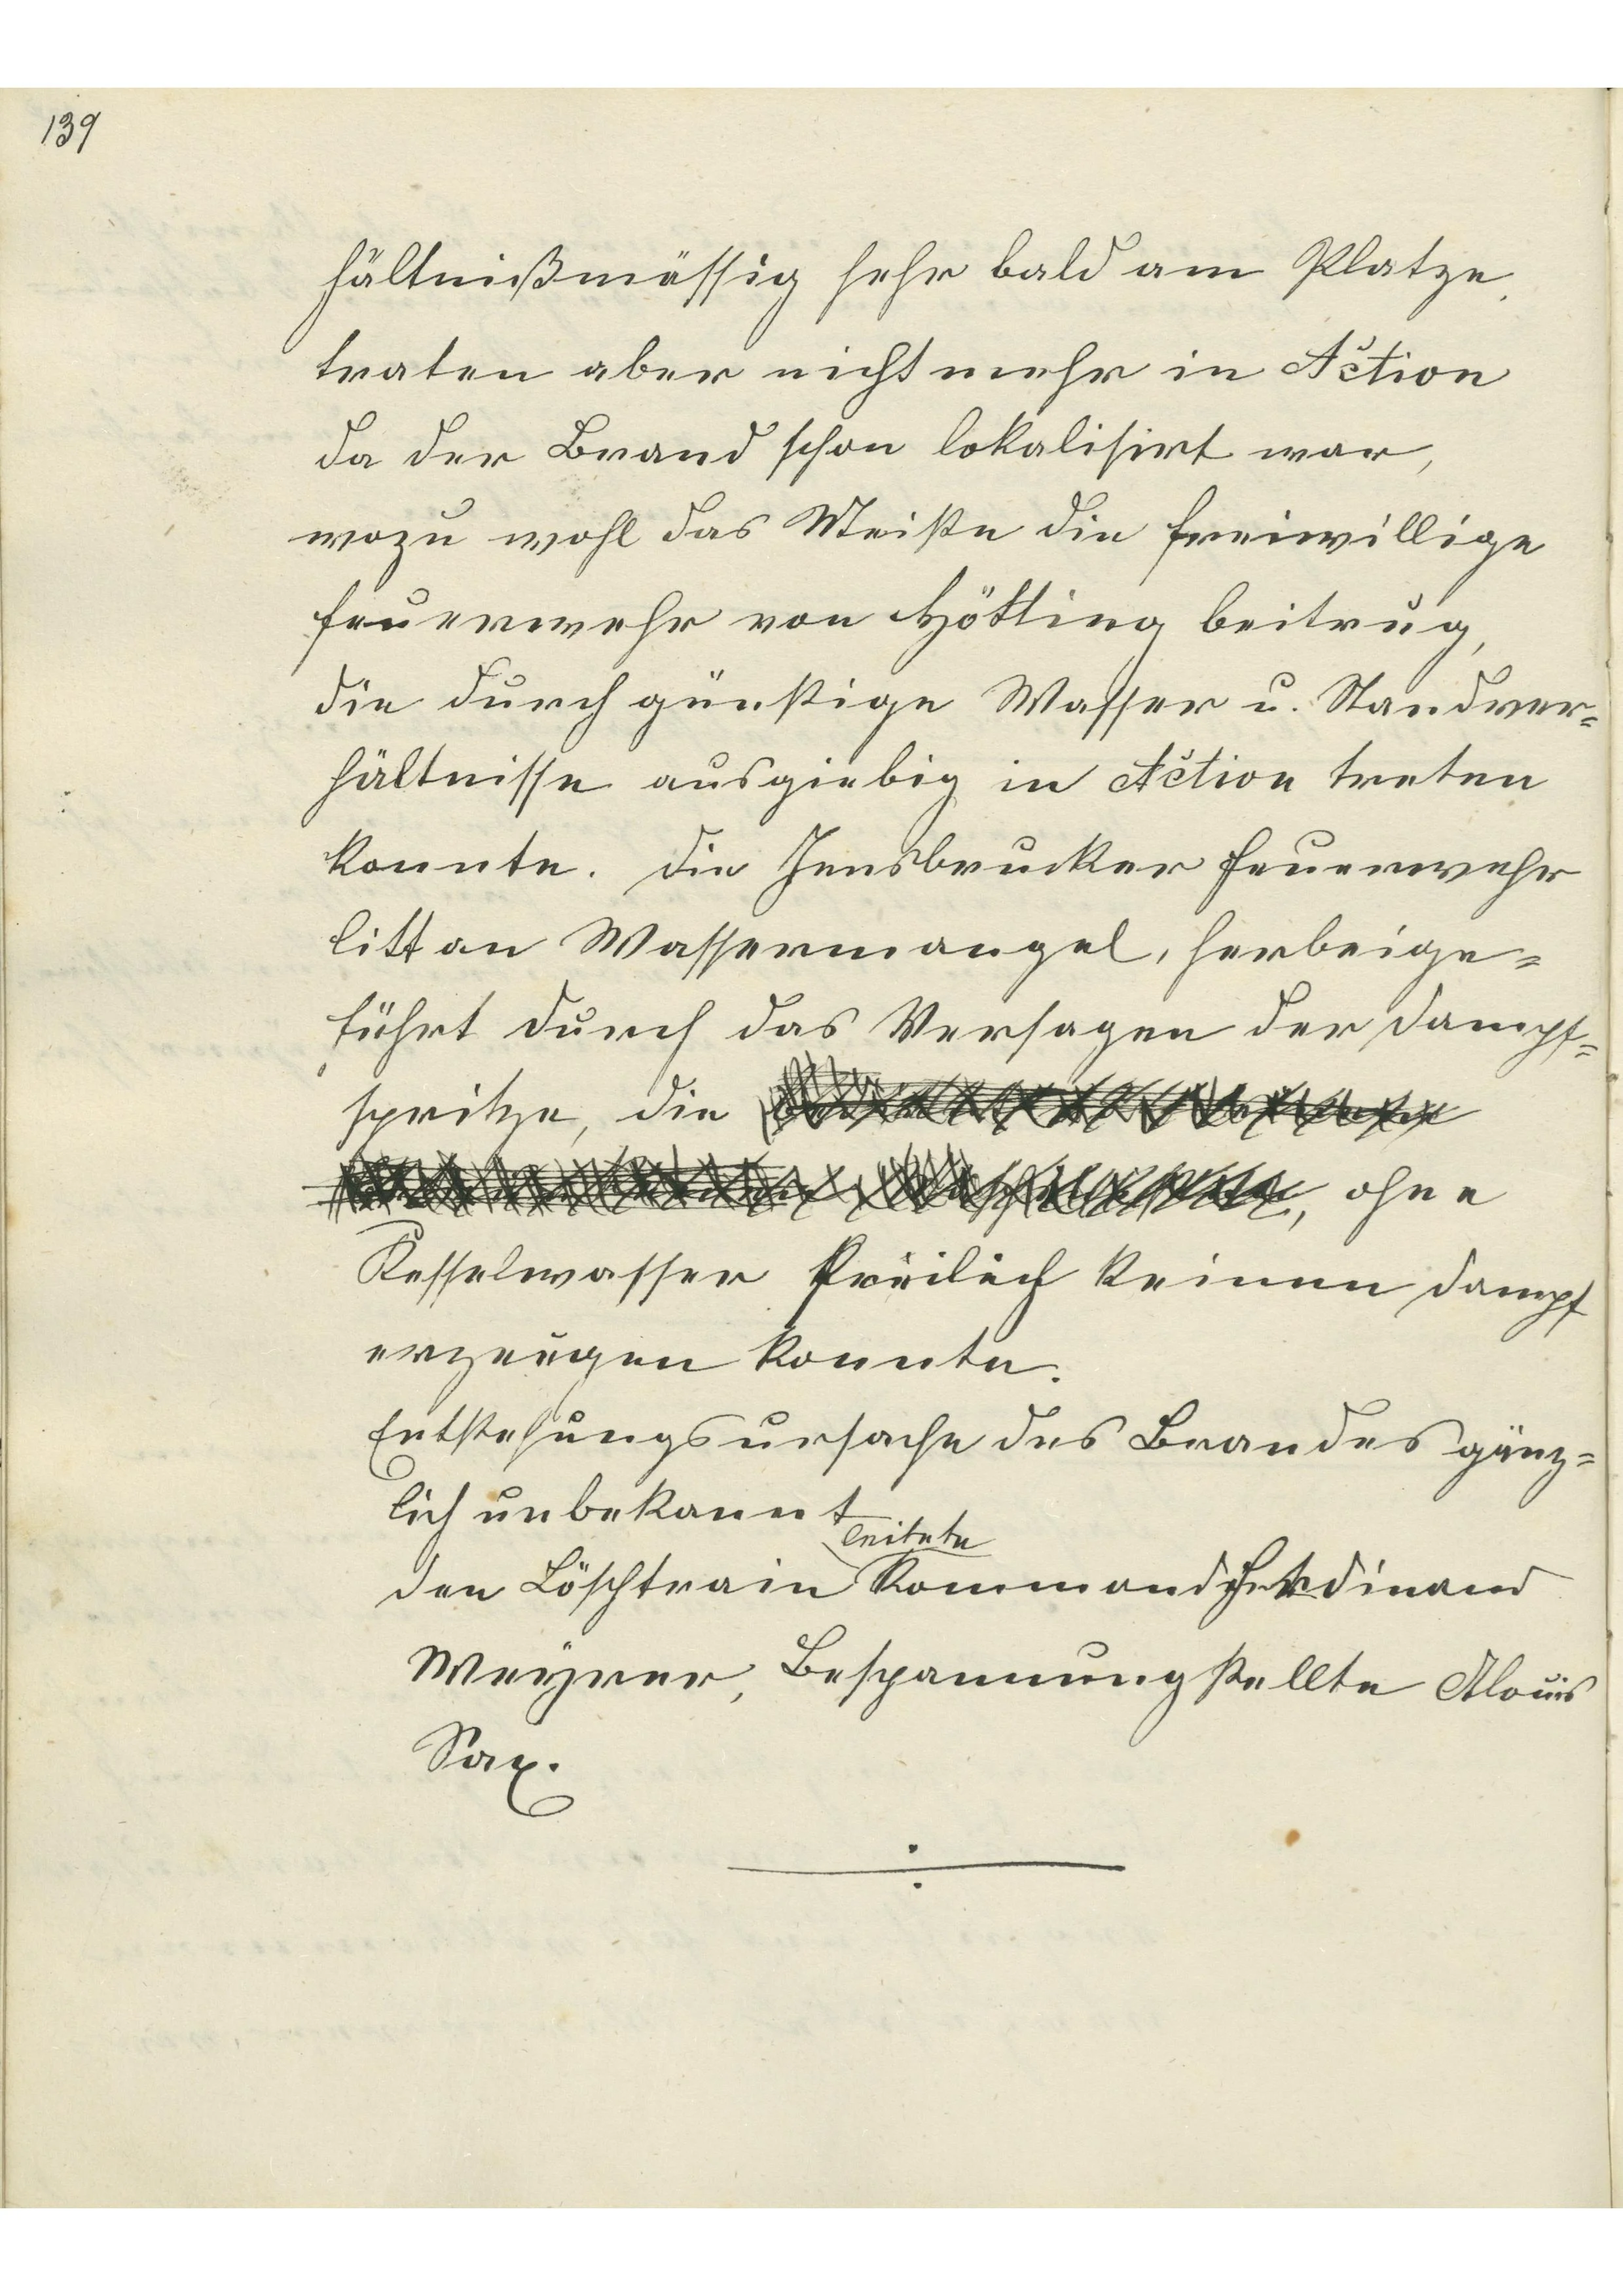 139
hältnißmässig sehr bald am Platze,
traten aber nicht mehr in Action
da der Brand schon lokalisirt war,
wozu wohl das Meiste die freiwillige
Feuerwehr von Hötting beitrug,
die durch günstige Wasser u. Standver=
hältnisse ausgiebig in Action treten
konnte. Die Innsbrucker Feuerwehr
litt an Wassermangel, herbeige=
führt durch das Versagen der Dampf=
spritze, die
, ohne
Kesselwasser freilich keinen Dampf
erzeugen konnte.
Entstehungsursache des Brandes gänz=
lich unbekannt
leitete
Den Löschtrain Kommandt Ferdinand
Weyrer, Bespannung stellte Alouis
Sax.